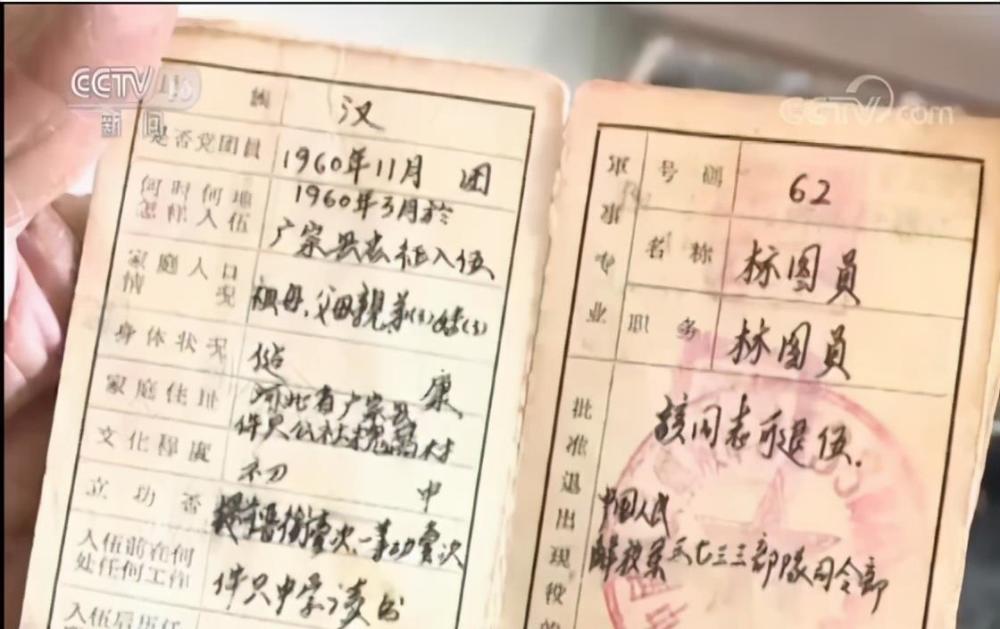 CCTV 13
新闻
CCTV.com
族 汉
是否党团員 1960年11月 团
何时何地
怎样入伍
1960年3月於
广宗县应征入伍
家庭人口
情况
祖母、父母親、弟(3)妹(3)
身体状况 健康
家庭住址 河北省广宗县
件只公社槐窩村
文化程度 初中
立功否 壹次、一等功壹次
入伍前在何
处任何工作
件只中学读书
入伍后历任
军事专业
号码 62
名称 标图員
职务 标图員
批准退出现役的
该同志可退伍.
中国人民
解放军三七三三部隊司令部